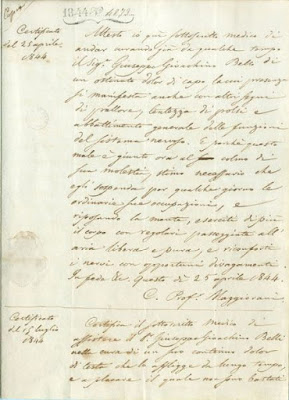 Certificato
del 25 aprile
1844.
Attesto io quì sottoscritto medico di
andar curando già da qualche tempo
il Sigr. Giuseppe Gioachino Belli di
un ostinato dolor di capo la cui presenza
si manifesta anche con altri segni
di pallore, lentezza di polsi e
abbattimento generale delle funzioni
del sistema nervoso. E poiché questo
male è giunto ora al colmo di
sua molestia, stimo necessario che
egli sospenda per qualche giorno le
ordinarie sue occupazioni, e
riposando la mente, eserciti di più
il corpo con regolari passeggiate all'
aria libera e pura, e riconforti
i nervi con opportuni divagamenti.
In fede &c. Questo dì 25 aprile 1844.
D. Profr. Maggiorani
Certificato
del 15 luglio
1844
Certifica il sottoscritto Medico di
assistere il Sr. Giuseppe Gioachino Belli
nella cura di un suo contumace dolor
di testa che lo affligge da lungo tempo,
e a placare il quale non sono bastati